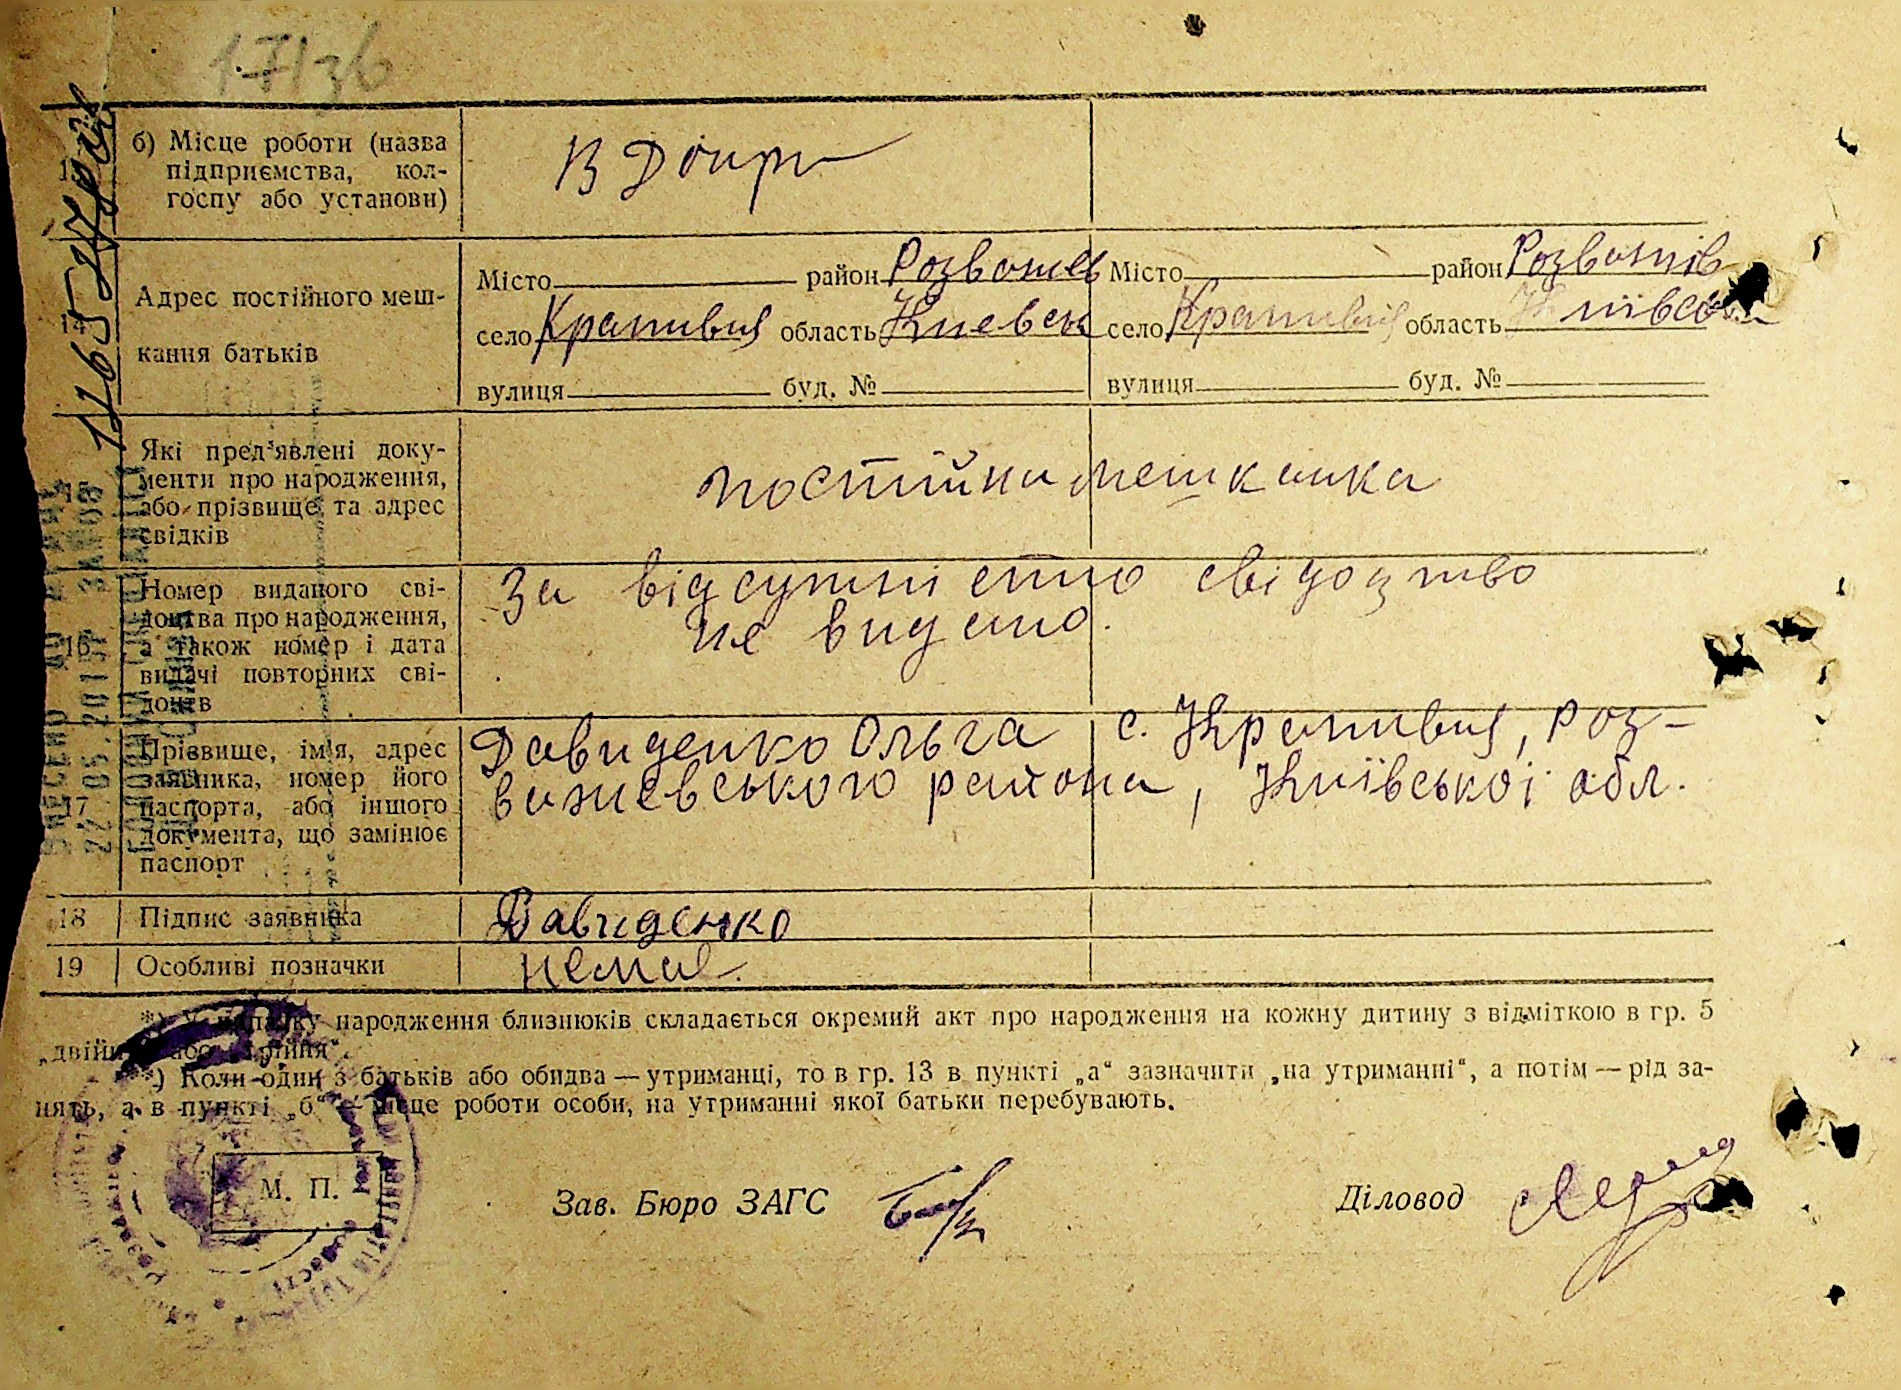 б) Місце роботи (назва
підприємства, кол-
госпу або установи)
В Допр
14
Адрес постійного меш-
кання батьків
Місто район Розважев
село Крапивня область Киевськ
вулиця буд. №
Місто район Розважів
село Крапивня область Київськ
вулиця буд. №
Які пред'явлені доку-
менти про народження,
або прізвище та адрес
свідків
постійна мешканка
16
Номер виданого сві-
доцтва про народження,
а також номер і дата
видачі повторних сві-
доцтв
За відсутністю свідоцтво
не видано.
17
Прізвище, ім'я, адрес
заявника, номер його
паспорта, або іншого
документа, що замінює
паспорт
Давиденко Ольга с. Крапивня, Роз-
важевського района, Київської обл.
18 Підпис заявника
Давиденко
19 Особливі позначки
немає.
*) У випадку народження близнюків складається окремий акт про народження на кожну дитину з відміткою в гр. 5
„двійня“ або „трійня“.
*) Коли один з батьків або обидва — утриманці, то в гр. 13 в пункті „а“ зазначити „на утриманні“, а потім — рід за-
нять, а в пункті „б“ — місце роботи особи, на утриманні якої батьки перебувають.
М. П.
Зав. Бюро ЗАГС
Діловод